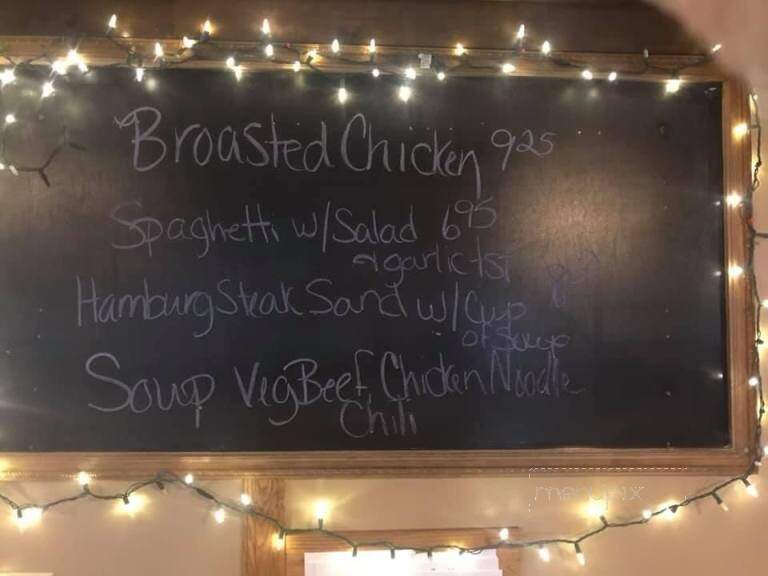 Broasted Chicken 9²⁵
Spaghetti w/Salad 6⁹⁵
& garlic tst
Hamburg Steak Sand w/Cup
of Soup
Soup VegBeef, Chicken Noodle
Chili
menupix